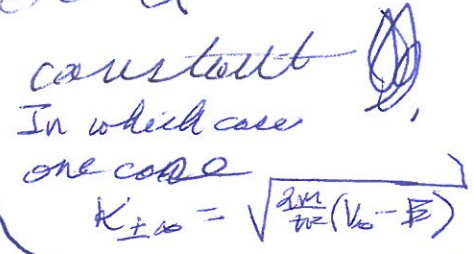 constant
In which case
one case
K±∞ = √(2m/ħ²(V₀ - E))